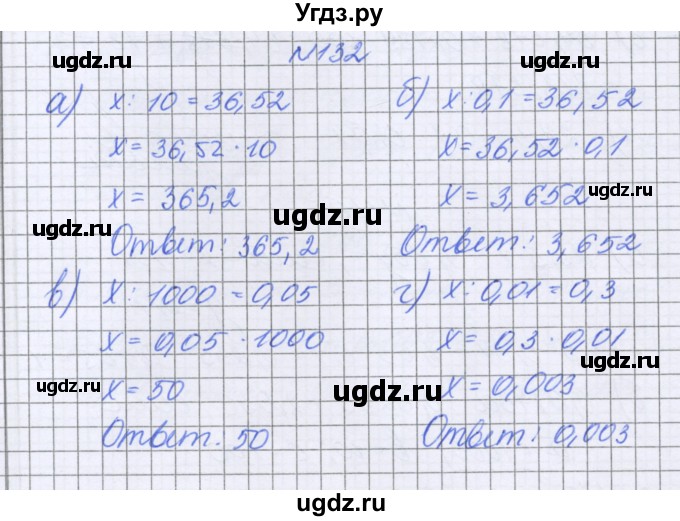 Угдз.ру
№132
а) x: 10 = 36,52
x = 36,52 · 10
x = 365,2
Ответ: 365,2
б) x: 0,1 = 36,52
x = 36,52 · 0,1
x = 3,652
Ответ: 3,652
в) x: 1000 = 0,05
x = 0,05 · 1000
x = 50
Ответ. 50
г) x: 0,01 = 0,3
x = 0,3 · 0,01
x = 0,003
Ответ: 0,003
ugdz.ru
ugdz.ru
ugdz.ru
ugdz.ru
ugdz.ru
ugdz.ru
ugdz.ru
ugdz.ru
ugdz.ru